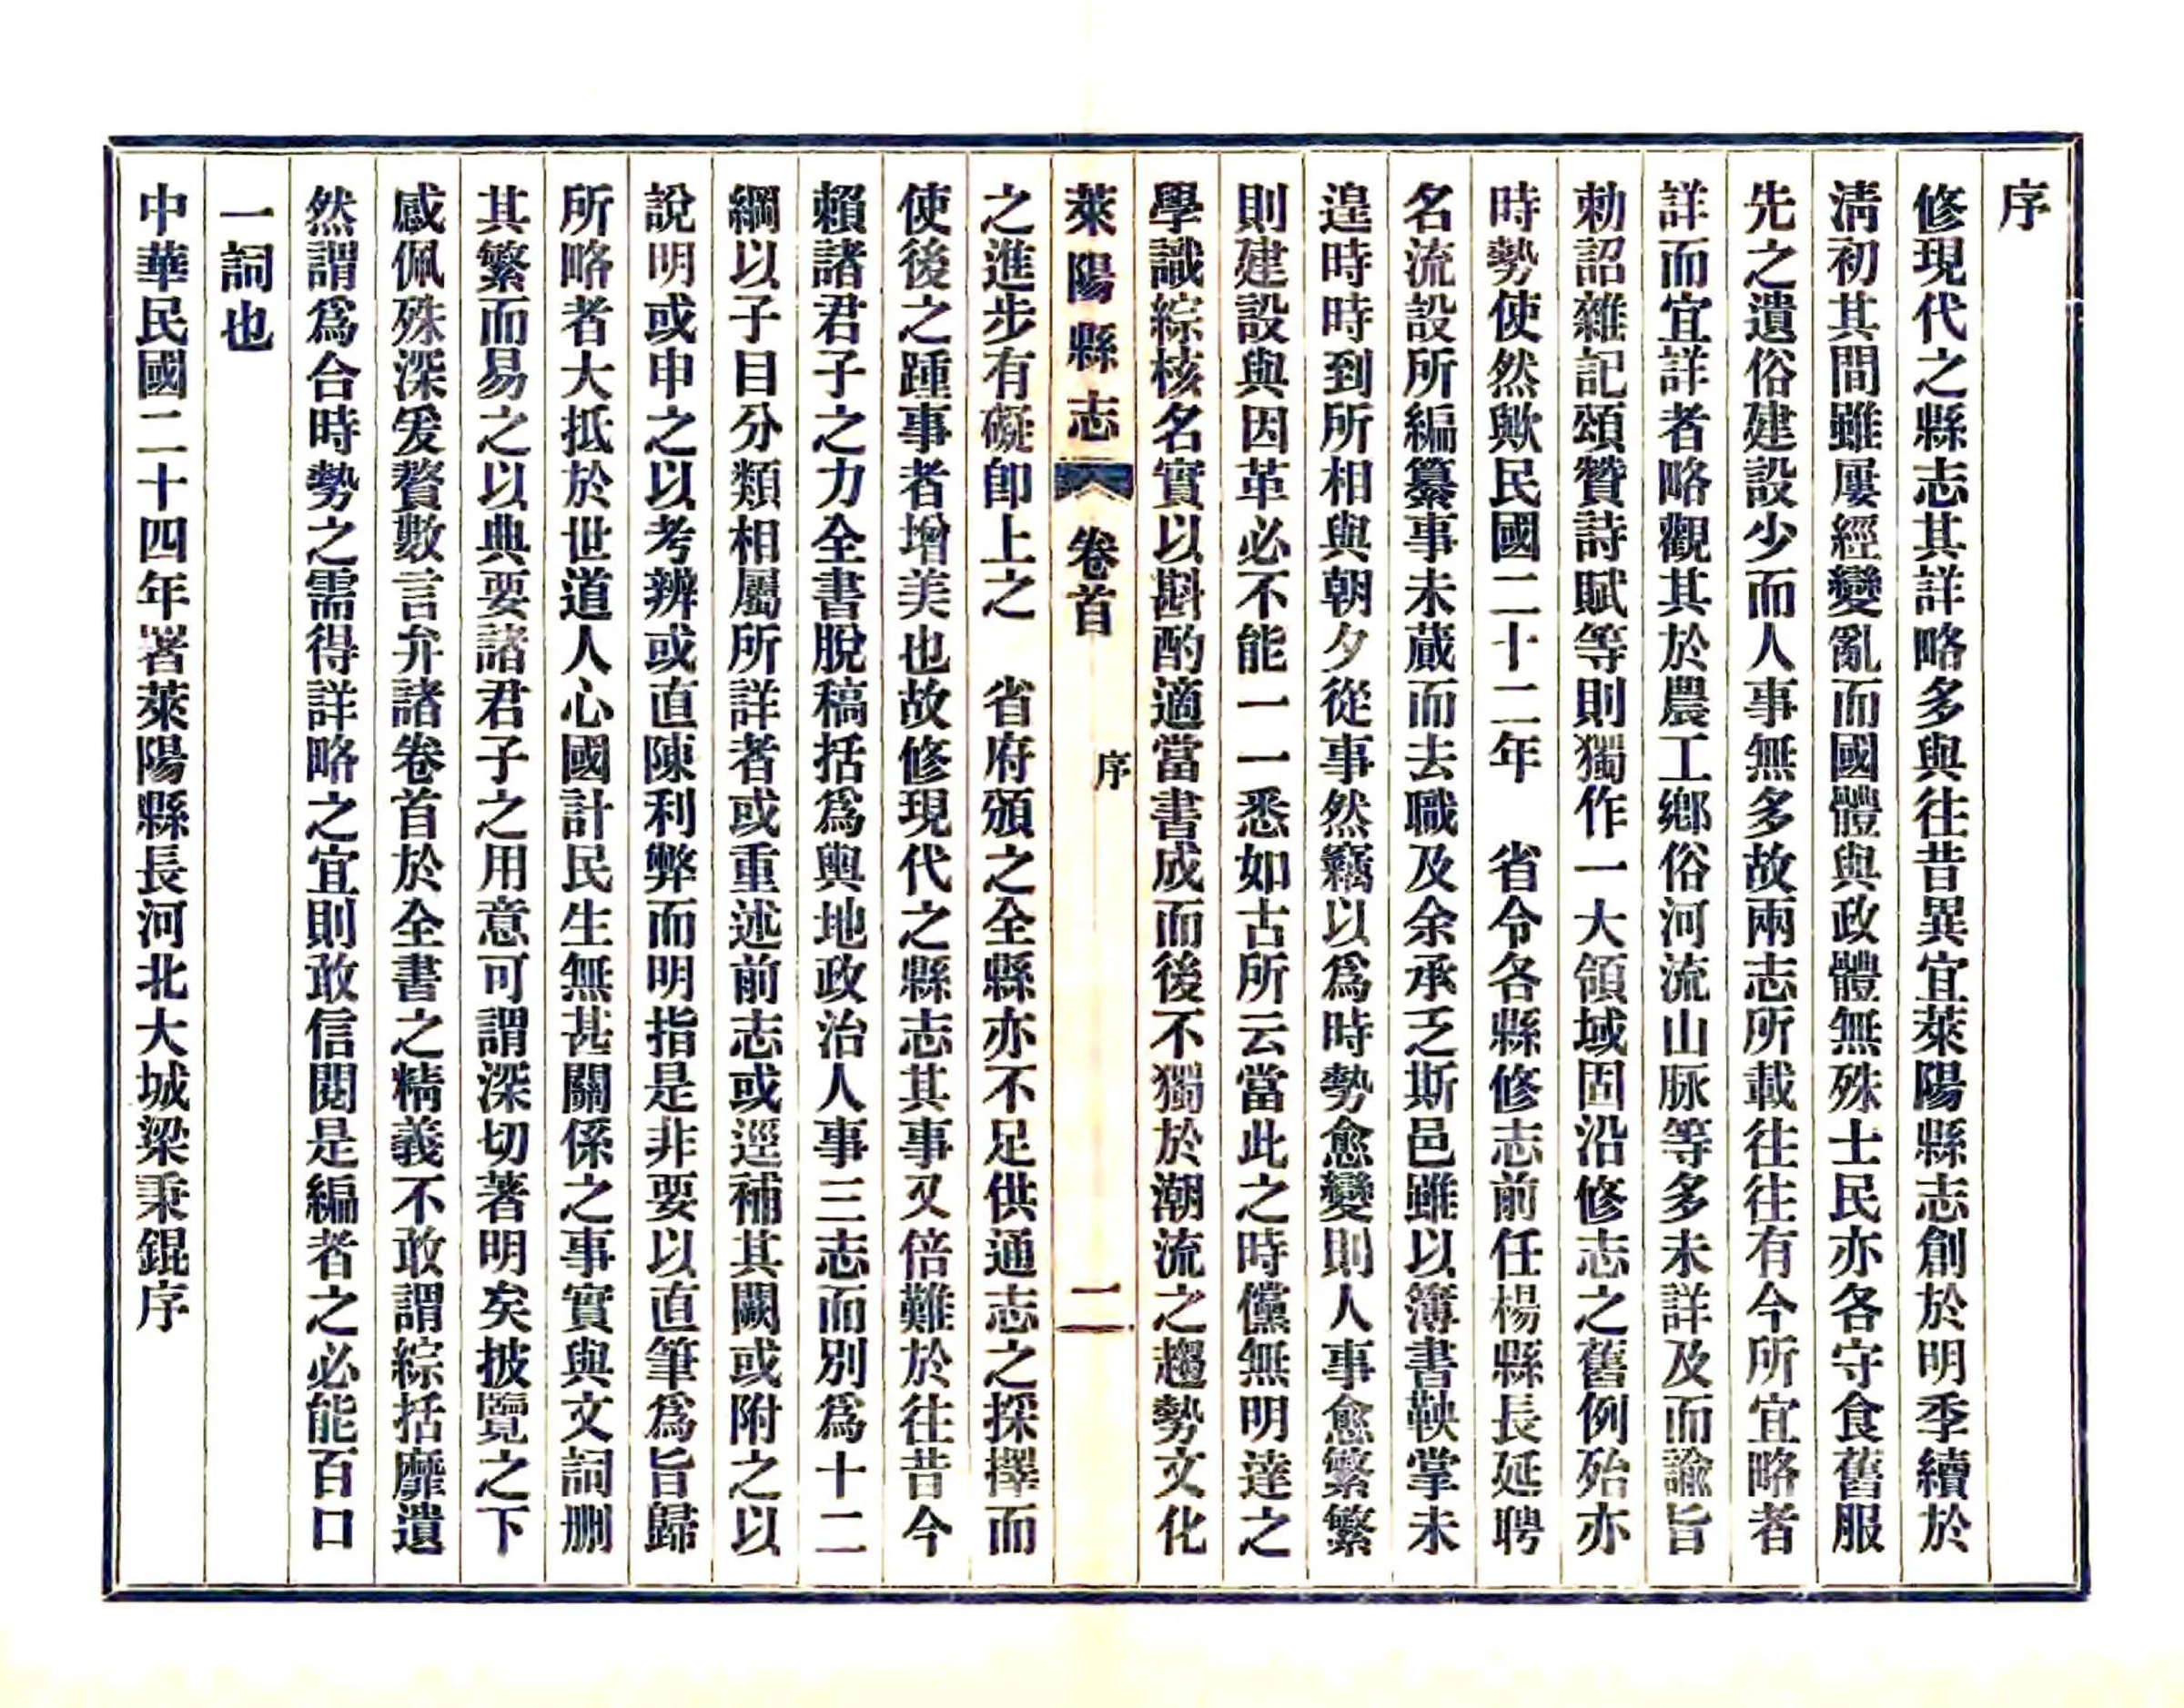 序
修現代之縣志其詳略多與往昔異宜萊陽縣志創於明季續於
清初其間雖屢經變亂而國體與政體無殊士民亦各守食舊服
先之遺俗建設少而人事無多故兩志所載往往有今所宜略者
詳而宜詳者略觀其於農工鄉俗河流山脉等多未詳及而諭旨
勅詔雜記頌贊詩賦等則獨作一大領域固沿修志之舊例殆亦
時勢使然歟民國二十二年　省令各縣修志前任楊縣長延聘
名流設所編纂事未蕆而去職及余承乏斯邑雖以簿書鞅掌未
遑時時到所相與朝夕從事然竊以爲時勢愈變則人事愈繁繁
則建設與因革必不能一一悉如古所云當此之時儻無明達之
學識綜核名實以斟酌適當書成而後不獨於潮流之趨勢文化
萊陽縣志　卷首　序　二
之進步有礙卽上之　省府頒之全縣亦不足供通志之採擇而
使後之踵事者增美也故修現代之縣志其事又倍難於往昔今
賴諸君子之力全書脫稿括爲輿地政治人事三志而別爲十二
綱以子目分類相屬所詳者或重述前志或逕補其闕或附之以
說明或申之以考辨或直陳利弊而明指是非要以直筆爲旨歸
所略者大抵於世道人心國計民生無甚關係之事實與文詞刪
其繁而易之以典要諸君子之用意可謂深切著明矣披覽之下
感佩殊深爰贅數言弁諸卷首於全書之精義不敢謂綜括靡遺
然謂爲合時勢之需得詳略之宜則敢信閱是編者之必能百口
一詞也
中華民國二十四年署萊陽縣長河北大城梁秉錕序